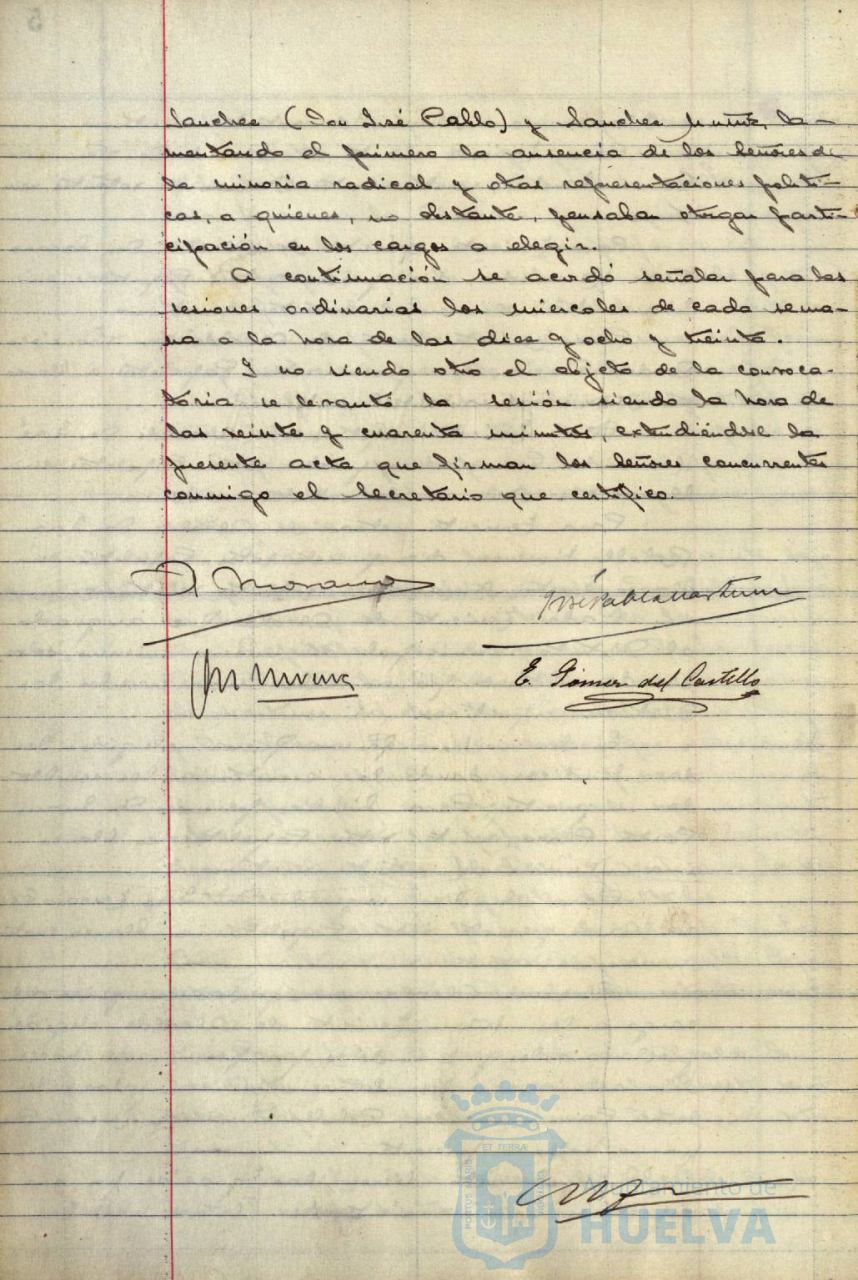 Sanchez (Don José Pablo) y Sanchez Muñiz, la-
mentando el primero la ausencia de los Señores de
la minoria radical y otras representaciones politi-
cas, a quienes, no obstante, pensaban otorgar parti-
cipación en los cargos a elegir.
A continuación se acordó señalar para las
sesiones ordinarias los miercoles de cada sema-
na a la hora de las diez y ocho y treinta.
Y no siendo otro el objeto de la convoca-
toria se levantó la sesión siendo la hora de
las veinte y cuarenta minutos, extendiéndose la
presente acta que firman los Señores concurrentes
conmigo el Secretario que certifico.
José Pablo
E. Gómez del Castillo
ET TERRÆ
PORTUS MARIS
Ayuntamiento de
HUELVA